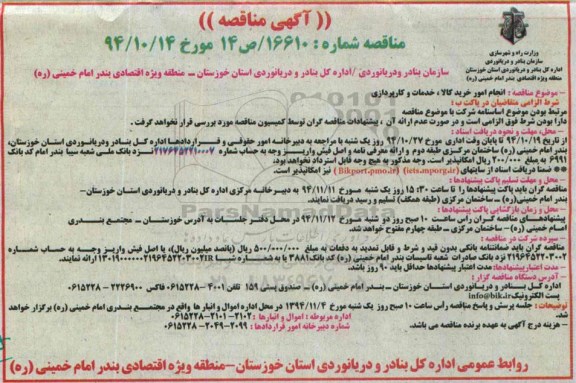 (( آگهی مناقصه ))
مناقصه شماره : ۱۶۶۱۰/ص۱۴ مورخ ۹۴/۱۰/۱۴
وزارت راه و شهرسازی
سازمان بنادر و دریانوردی
اداره کل بنادر و دریانوردی استان خوزستان
منطقه ویژه اقتصادی بندر امام خمینی (ره)
سازمان بنادر ودریانوردی /اداره کل بنادر و دریانوردی استان خوزستان – منطقه ویژه اقتصادی بندر امام خمینی (ره)
– موضوع مناقصه : انجام امور خرید کالا، خدمات و کارپردازی
شرط الزامی متقاضیان در پاکت ب :
مرتبط بودن موضوع اساسنامه شرکت با موضوع مناقصه
دارا بودن شرط فوق الزامی است و در صورت عدم ارائه آن ، پیشنهادات مناقصه گران توسط کمیسیون مناقصه مورد بررسی قرار نخواهد گرفت .
– محل، مهلت و نحوه دریافت اسناد :
از تاریخ ۹۴/۱۰/۱۹ تا پایان وقت اداری مورخ ۹۴/۱۰/۲۷ روز یک شنبه با مراجعه به دبیرخانه امور حقوقی و قراردادها اداره کل بنادر ودریانوردی استان خوزستان،
بندر امام خمینی (ره) – ساختمان مرکزی، طبقه دوم و ارائه معرفی نامه و اصل فیش واریز وجه به حساب شماره ۲۱۷۶۴۵۲۲۱۰۰۰۷ نزد بانک ملی شعبه سیبا بندر امام کد بانک
۶۹۹۱ به مبلغ ۲۰۰/۰۰۰ ریال امکانپذیر است. وجه مذکور به هیچ وجه قابل استرداد نخواهد بود.
** ضمنا دریافت اسناد از سایتهای (iets.mporg.ir) (Bikport.pmo.ir) نیز امکانپذیر است.
– محل و مهلت تسلیم پاکت پیشنهادها :
مناقصه گران باید پاکت پیشنهادها را تا ساعت ۱۵:۳۰ روز یک شنبه مورخ ۹۴/۱۱/۱۱ به دبیرخانه مرکزی اداره کل بنادر و دریانوردی استان خوزستان–
بندر امام خمینی (ره)– ساختمان مرکزی– (طبقه همکف) تسلیم و رسید دریافت نمایند.
– محل و زمان بازگشایی پاکت پیشنهادها :
پیشنهادهای مناقصه گران راس ساعت ۱۰ صبح روز دو شنبه مورخ ۹۴/۱۱/۱۲ در محل دفتر جلسات به آدرس خوزستان – مجتمع بندری
امام خمینی (ره) – ساختمان مرکزی – طبقه چهارم مفتوح خواهد شد.
– سپرده شرکت در مناقصه :
مناقصه گران باید ضمانتنامه بانکی بدون قید و شرط و قابل تمدید به دفعات به مبلغ ۵۰۰/۰۰۰/۰۰۰ ریال (پانصد میلیون ریال)، یا اصل فیش واریز وجه به حساب شماره
۲۱۹۶۴۵۲۲۰۳۰۰۲ نزد بانک صادرات شعبه تاسیسات بندر امام خمینی (ره) کد بانک ۳۸۸۱ یا به شماره شبا ارائه نمایند.
– مدت اعتبار پیشنهادها: مدت اعتبار پیشنهادها حداقل باید ۹۰ روز باشد.
– آدرس دستگاه مناقصه گزار :
اداره کل بنادر و دریانوردی استان خوزستان – بندر امام خمینی (ره) – صندوق پستی ۱۵۹ تلفن ۴۰۰۱– ۰۶۱۵۲۲۸ فاکس ۲۲۲۶۹۰۰ – ۰۶۱۵۲۲۸
پست الکترونیک: info@bik.ir
توضیحات : جلسه پرسش و پاسخ مناقصه راس ساعت ۱۰ صبح روز یک شنبه مورخ ۱۳۹۴/۱۱/۴ در محل اداره اموال و انبارها واقع در مجتمع بندری امام خمینی (ره) برگزار خواهد
شد.
اداره مربوطه : اموال و انبارها : ۲۱۰۲–۲۱۰۱–۰۶۱۵۲۲۸
– هزینه درج آگهی به عهده برنده مناقصه می باشد.
شماره دبیرخانه امور قراردادها : ۲۰۹۹–۲۰۴۹–۰۶۱۵۲۲۸
روابط عمومی اداره کل بنادر و دریانوردی استان خوزستان–منطقه ویژه اقتصادی بندر امام خمینی (ره)